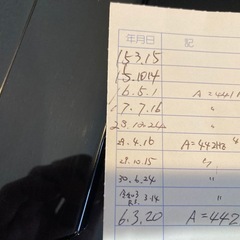 年月日 記
15.3.15
15.10.14
16.5.1 A=441
17.7.16 〃
28.4.16 A=442Hz
29.10.15 〃
30.6.24 〃
3.14
6.3.20 A=442